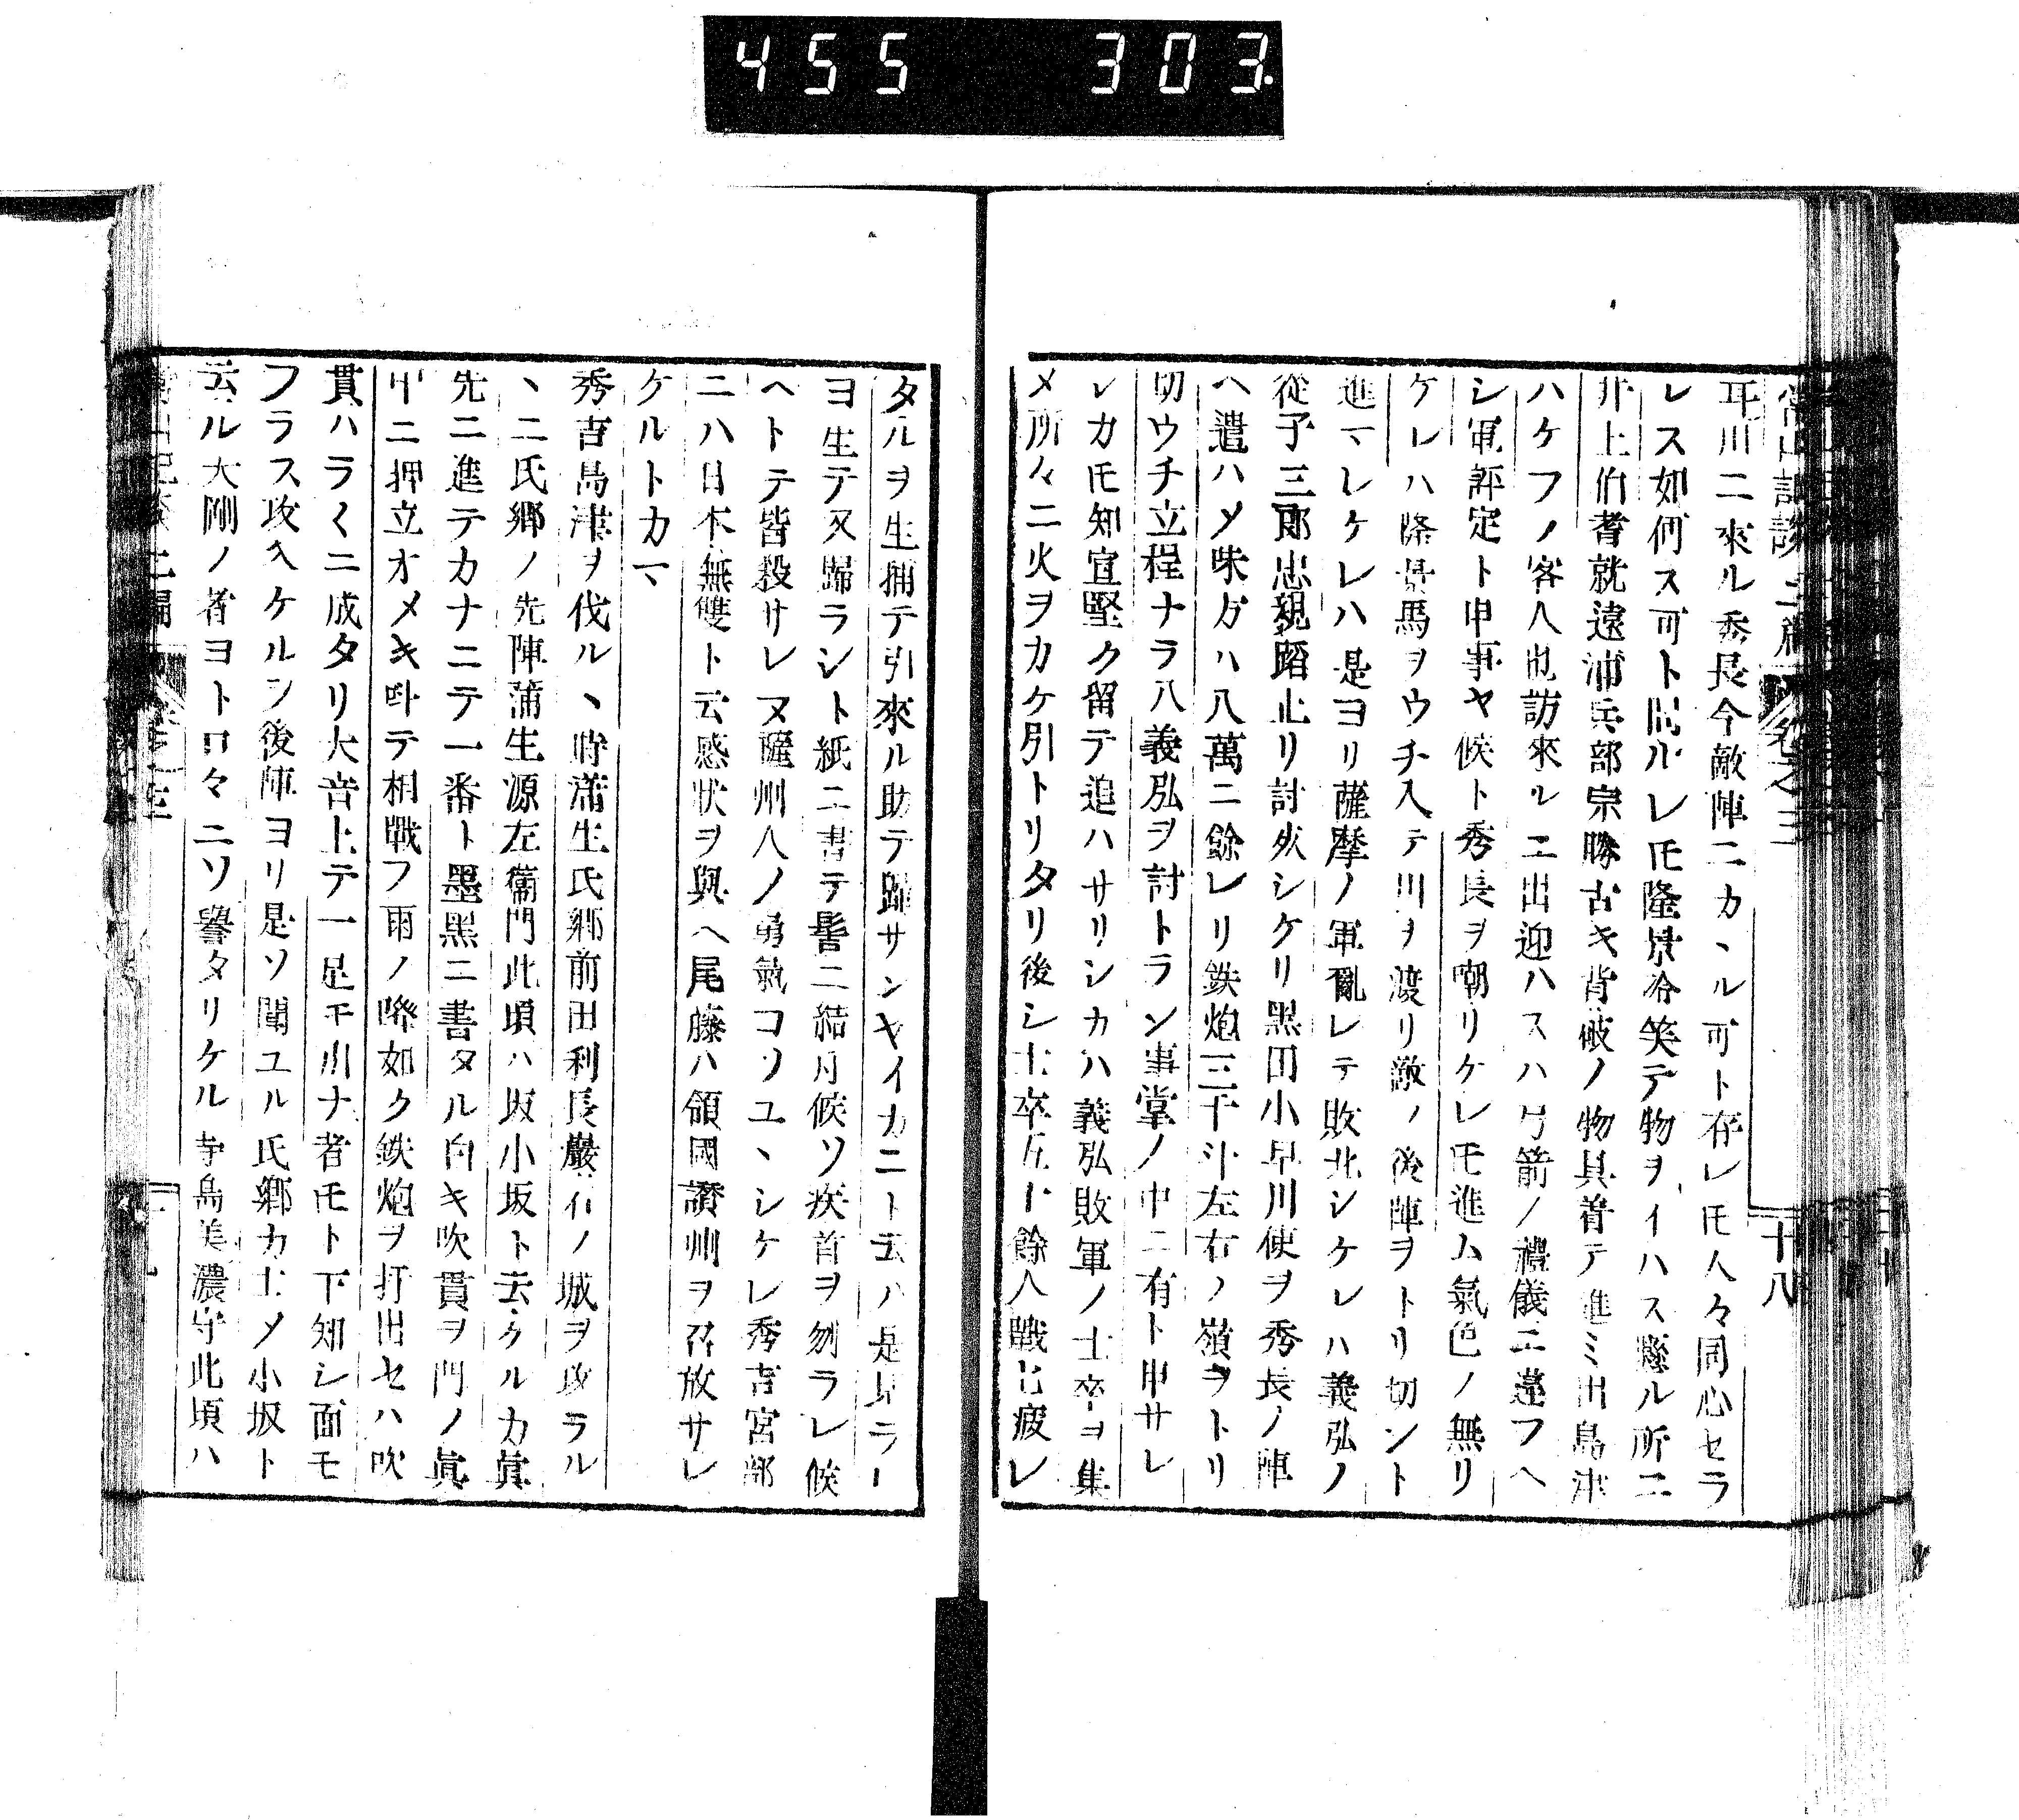 455 303.
常山記談二編 卷之三 十八
耳川ニ來ル秀長今敵陣ニカヽル可ト存レ𪜈人々同心セラ
レス如何ス可ト問ルレ𪜈隆景冷笑テ物ヲイハス隆ル所ニ
井上伯耆就遠浦兵部宗勝古キ背破ノ物具着テ進ミ出島津
ハケフノ客人也訪來ルニ出迎ハスハ弓箭ノ禮儀ニ違フヘ
シ軍評定ト申事ヤ候ト秀長ヲ嘲リケレ𪜈進ム氣色ノ無リ
ケレハ隆景馬ヲウチ入テ川ヲ渡リ敵ノ後陣ヲトリ切ント
進マレケレハ是ヨリ薩摩ノ軍亂レテ敗北シケレハ義弘ノ
從子三郎忠親蹈止リ討死シケリ黑田小早川使ヲ秀長ノ陣
ヘ遣ハメ味方ハ八萬ニ餘レリ鉄炮三千斗左右ノ嶺ヲトリ
切ウチ立程ナラハ義弘ヲ討トラン事掌ノ中ニ有ト申サレ
レカ𪜈知宣堅ク留テ追ハサリシカハ義弘敗軍ノ士卒ヲ集
メ所々ニ火ヲカケ引トリタリ後シ士卒五十餘人戰ヒ疲レ
タルヲ生捕テ引來ル助テ歸サンヤイカニト云ハ是見ラー
ヨ生テ又歸ラシト紙ニ書テ髻ニ結付候ソ疾首ヲ刎ラレ候
ヘトテ皆殺サレヌ薩州人ノ勇氣コソユヽシケレ秀吉宮部
ニハ日本無雙ト云感状ヲ與ヘ尾藤ハ領國讃州ヲ召放サレ
ケルトカヤ
秀吉島津ヲ伐ルヽ時蒲生氏郷前田利長巖石ノ城ヲ攻ラル
ヽ二氏郷ノ先陣蒲生源左衞門此頃ハ坂小坂ト云ケルカ眞
先ニ進テカナニテ一番ト墨黑ニ書タル白キ吹貫ヲ門ノ眞
中ニ押立オメキ叫テ相戰フ雨ノ降如ク鉄炮ヲ打出セハ吹
貫ハラ〱ニ成タリ大音上テ一足モ引ナ者𪜈ト下知シ面モ
フラス攻入ケルヲ後陣ヨリ是ソ聞ユル氏郷カ士メ小坂ト
云ル大剛ノ者ヨト口々ニソ譽タリケル寺島美濃守此頃ハ